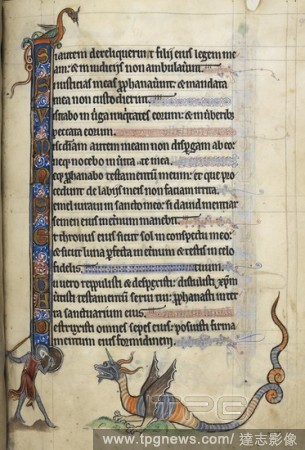 Si autem dereliquerint filij eius legem me
am: & in iudicijs non ambulauerint.
Si iusticias meas prophanauerint: & mandata
mea non custodierint.
Visitabo in uirga iniquitates eorum: & in uerberib;
peccata eorum.
Misericordiam autem meam non dispergam ab eo:
neque nocebo in ueritate mea.
Neque prophanabo testamentum meum: et que pro
cedunt de labijs meis non faciam irrita.
Semel iuraui in sancto meo: si dauid mentiar
semen eius in eternum manebit.
Et thronus eius sicut sol in conspectu meo:
& sicut luna perfecta in eternum: & testis in celo
fidelis. tuum.
Tu uero reppulisti & despexisti: distulisti xpm
Euertisti testamentum serui tui: prophanasti in ter
ra sanctuarium eius.
Destruxisti omnes sepes eius: posuisti firma
mentum eius formidinem.
TPG
www.tpgnews.com/達志影像